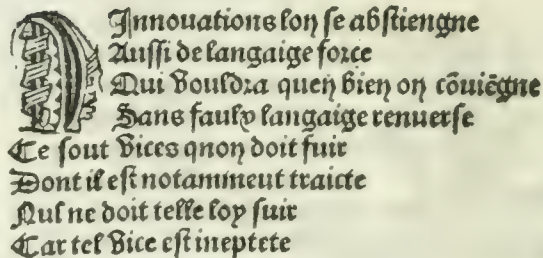 DInnouations lon ſe abſtiengne
Auſſi de langaige force
Qui vouldra quen bien on cõuiẽgne
Sans faulx langaige renuerſe
Ce ſout vices qnon doit fuir
Dont il eſt notammeut traicte
Nul ne doit telle loy ſuir
Car tel vice eſt ineptete